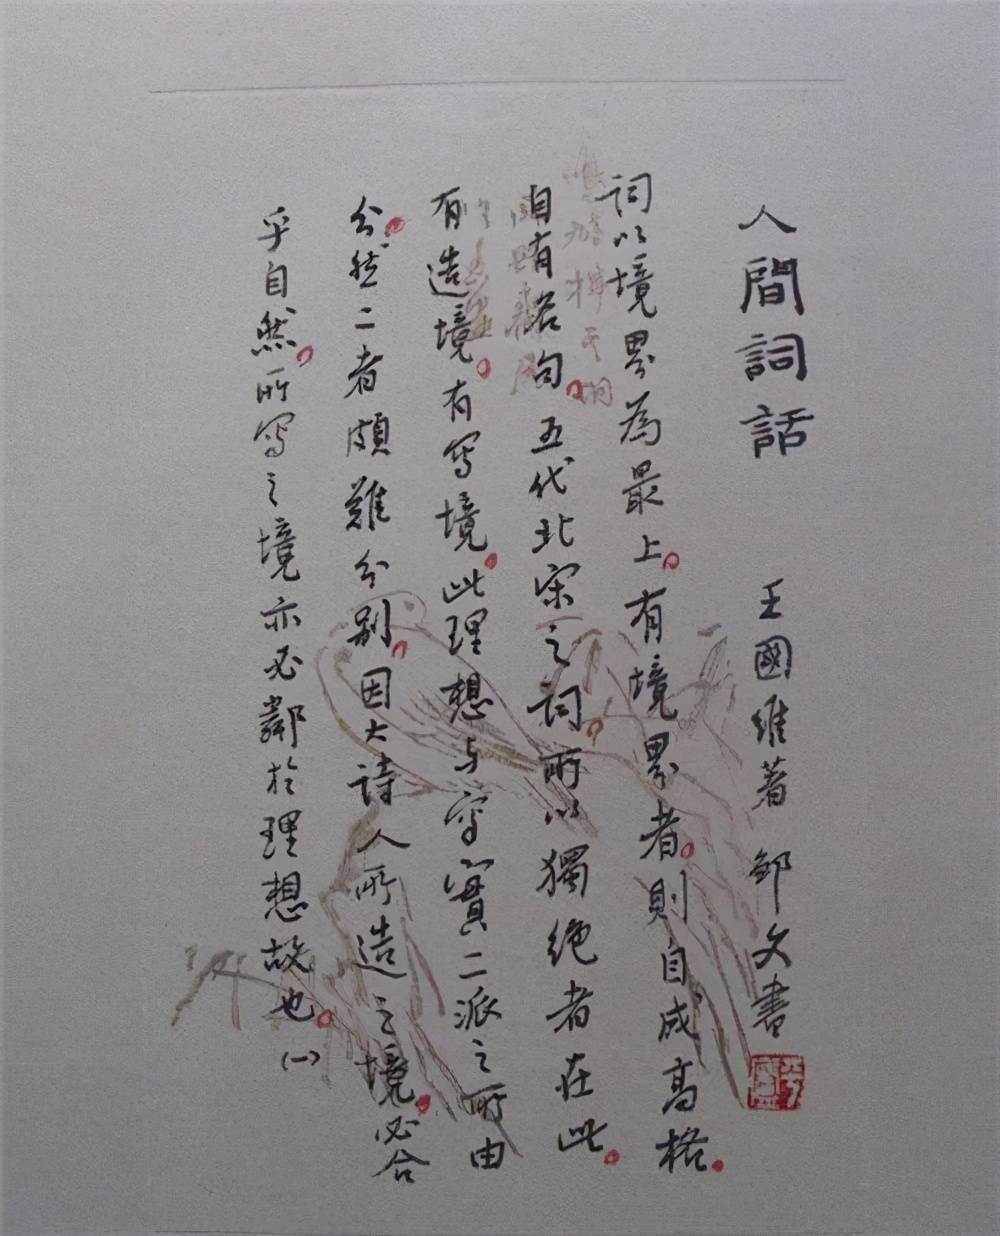 人間詞話 王國維著 文書
詞以境界為最上。有境界者。則自成高格。
自有名句。五代北宋之詞。所以獨絶者在此。
有造境。有寫境。此理想与寫實二派之所由
分。然二者頗難分别。因大詩人所造之境。必合
乎自然。所寫之境亦必鄰於理想故也。(一)